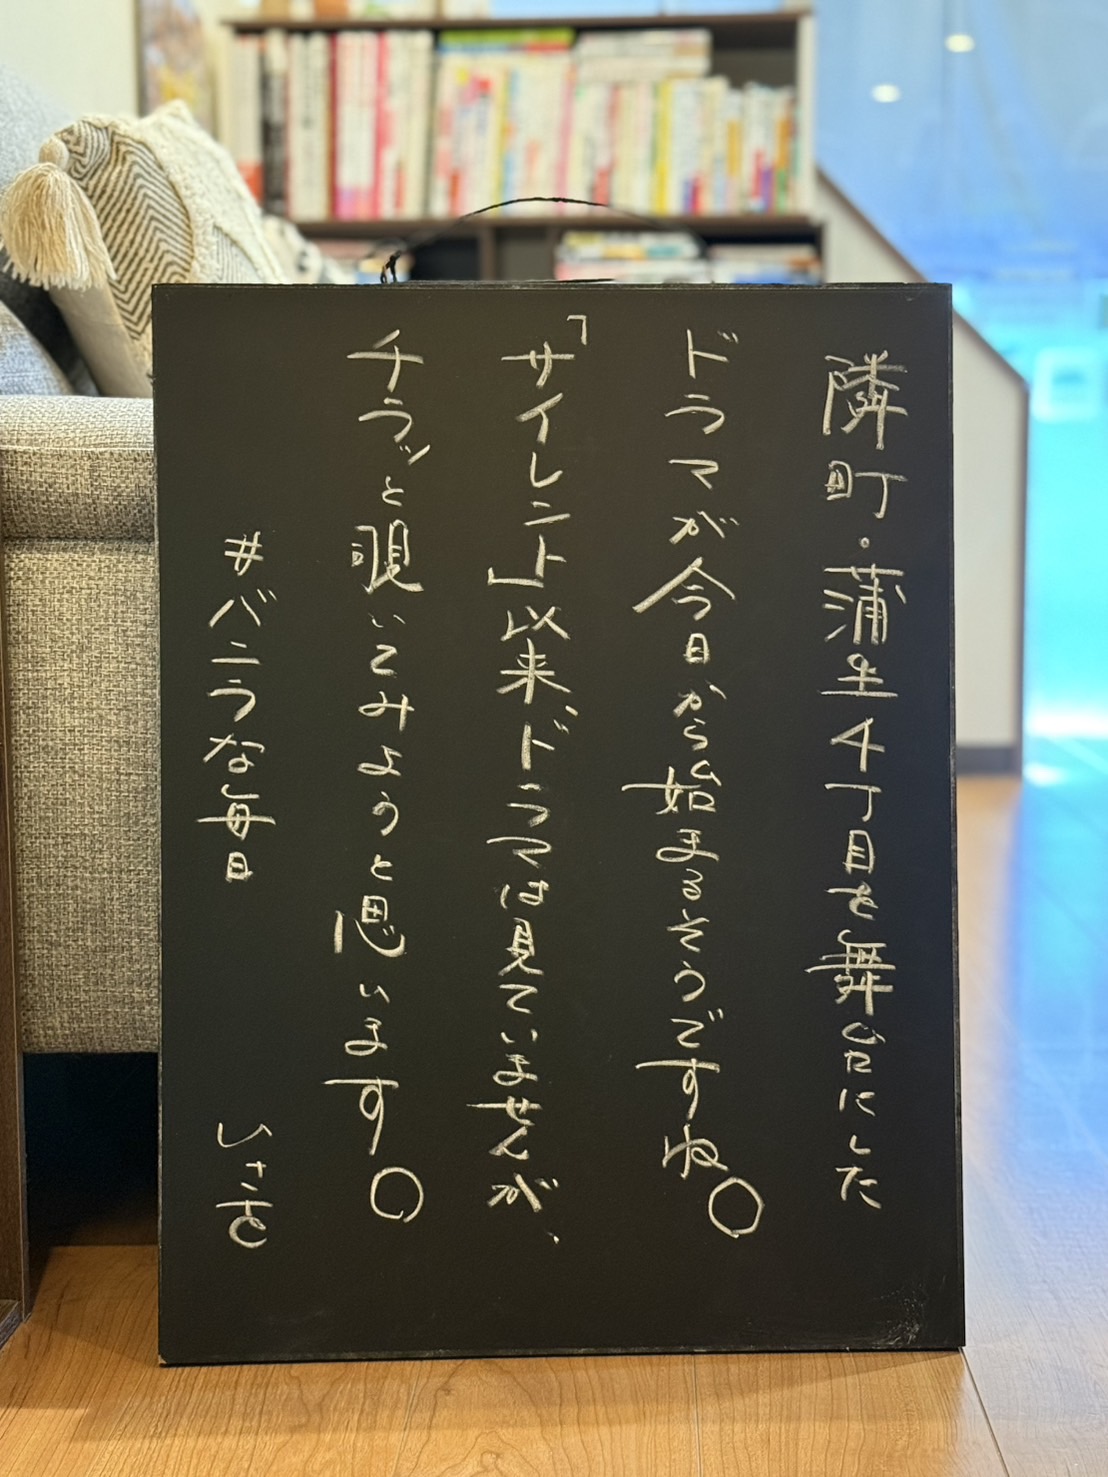 隣町・蒲生4丁目を舞台にした
ドラマが今日から始まるそうですね。
「サイレント」以来、ドラマは見ていませんが、
チラッと覗いてみようと思います。
#バニラな毎日
いさを